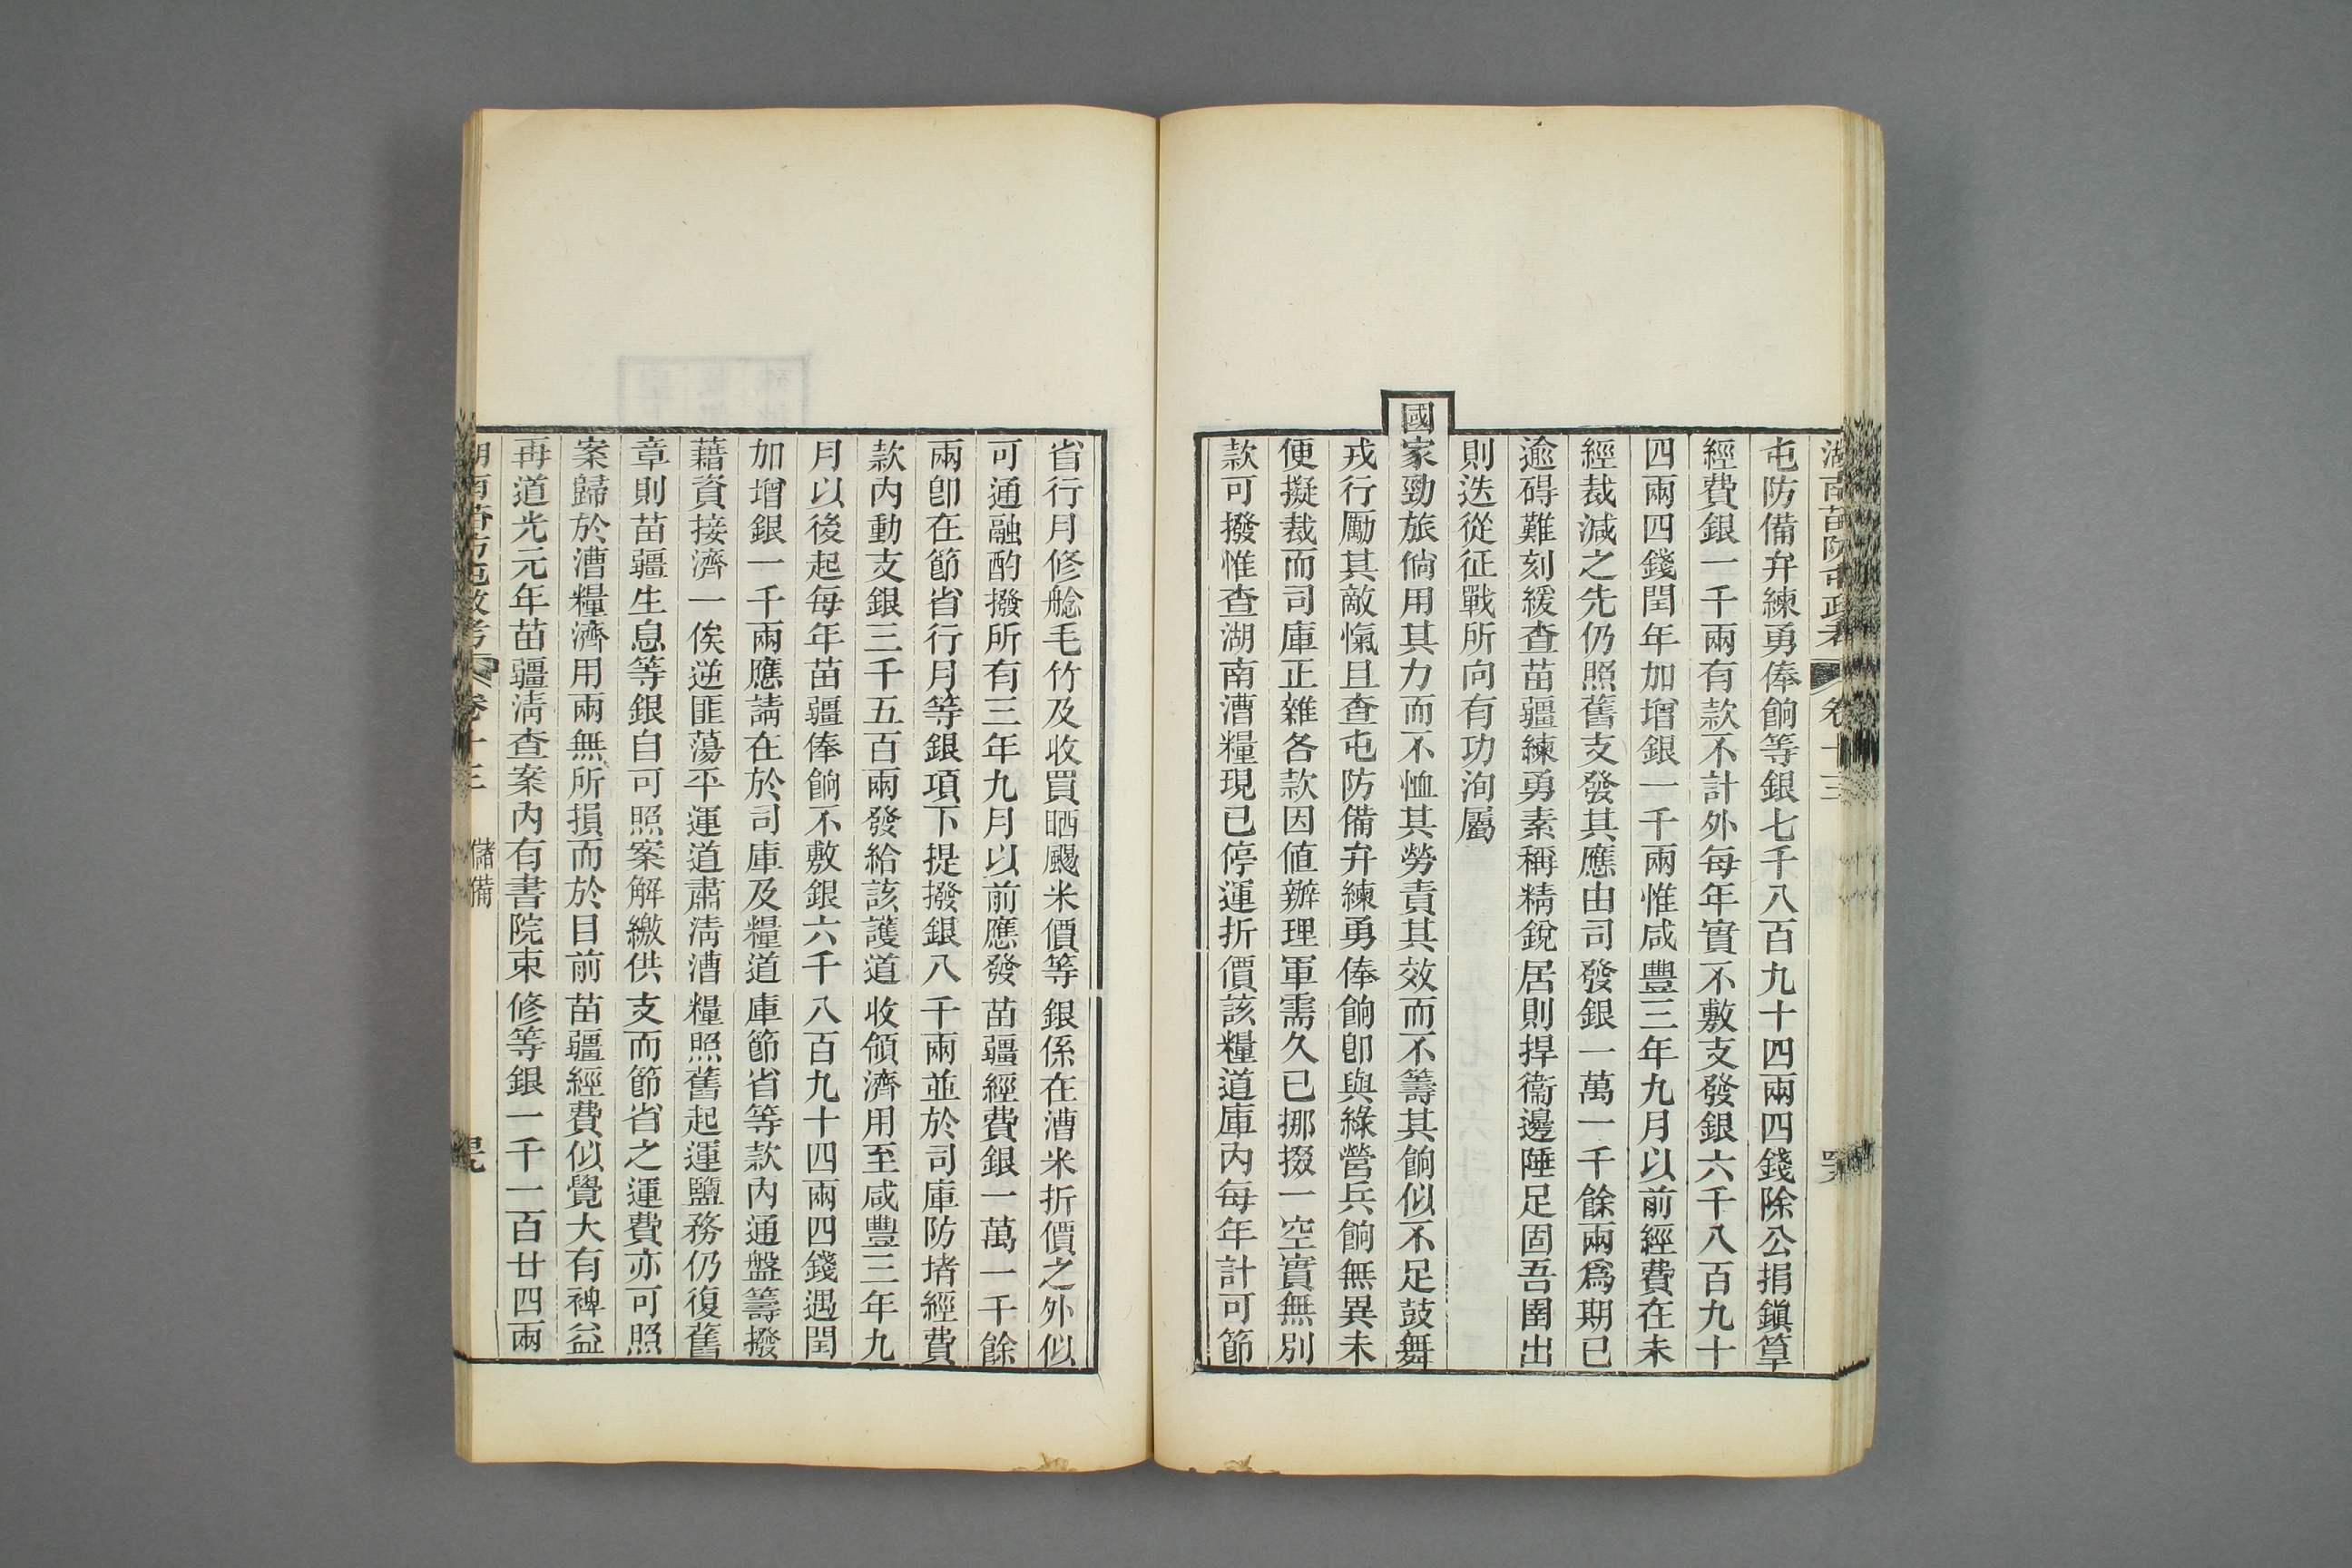 湖南苗防屯政考 卷十三
屯防備弁練勇俸餉等銀七千八百九十四兩四錢除公捐鎭筸
經費銀一千兩有款不計外每年實不敷支發銀六千八百九十
四兩四錢閏年加增銀一千兩惟咸豐三年九月以前經費在未
經裁減之先仍照舊支發其應由司發銀一萬一千餘兩爲期已
逾碍難刻緩查苗疆練勇素稱精銳居則捍衞邊陲足固吾圉出
則迭從征戰所向有功洵屬
國家勁旅倘用其力而不恤其勞責其效而不籌其餉似不足鼓舞
戎行勵其敵愾且查屯防備弁練勇俸餉卽與綠營兵餉無異未
便擬裁而司庫正雜各款因値辦理軍需久已挪掇一空實無別
款可撥惟查湖南漕糧現已停運折價該糧道庫內每年計可節
省行月修艌毛竹及收買晒颺米價等銀係在漕米折價之外似
可通融酌撥所有三年九月以前應發苗疆經費銀一萬一千餘
兩卽在節省行月等銀項下提撥銀八千兩並於司庫防堵經費
款內動支銀三千五百兩發給該護道收領濟用至咸豐三年九
月以後起每年苗疆俸餉不敷銀六千八百九十四兩四錢遇閏
加增銀一千兩應請在於司庫及糧道庫節省等款內通盤籌撥
藉資接濟一俟逆匪蕩平運道肅淸漕糧照舊起運鹽務仍復舊
章則苗疆生息等銀自可照案解繳供支而節省之運費亦可照
案歸於漕糧濟用兩無所損而於目前苗疆經費似覺大有裨益
再道光元年苗疆淸查案內有書院束修等銀一千一百廿四兩
湖南苗防屯政考 卷十三 儲備